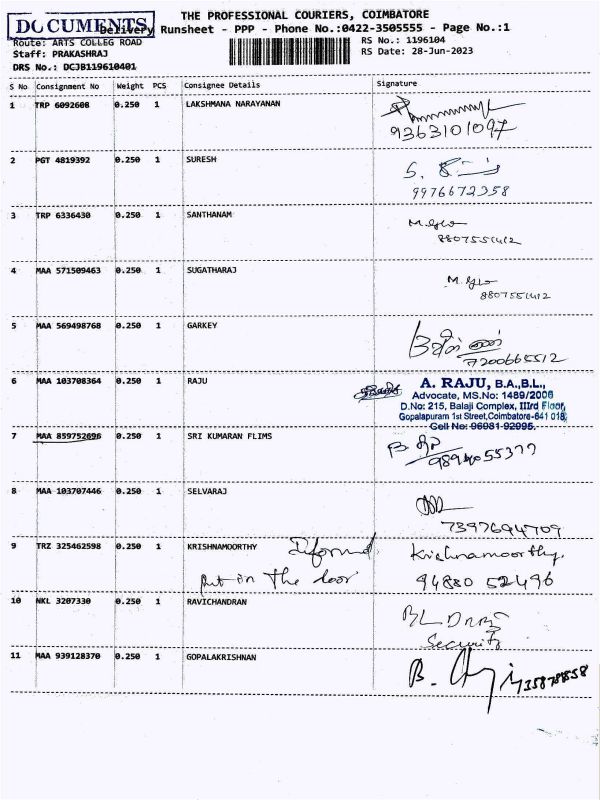 THE PROFESSIONAL COURIERS, COIMBATORE
DOCUMENTS
Delivery Runsheet - PPP - Phone No.:0422-3505555 - Page No.:1
Route: ARTS COLLEG ROAD
RS No.: 1196104
Staff: PRAKASHRAJ
RS Date: 28-Jun-2023
DRS No.: DCJB119610401
S No Consignment No Weight PCS Consignee Details Signature
1 TRP 6092608 0.250 1 LAKSHMANA NARAYANAN
9363101097
2 PGT 4819392 0.250 1 SURESH
9976672358
3 TRP 6336430 0.250 1 SANTHANAM
8807551412
4 MAA 571509463 0.250 1 SUGATHARAJ
8807551412
5 MAA 569498768 0.250 1 GARKEY
7200665512
6 MAA 103708364 0.250 1 RAJU
A. RAJU, B.A.,B.L.,
Advocate, MS.No: 1489/2006
D.No: 215, Balaji Complex, IIIrd Floor,
Gopalapuram 1st Street,Coimbatore-641 018.
Cell No: 96981-92995.
7 MAA 859752696 0.250 1 SRI KUMARAN FLIMS
8 MAA 103707446 0.250 1 SELVARAJ
7397694709
9 TRZ 325462598 0.250 1 KRISHNAMOORTHY Krishnamoorthy.
Put in The door 94880 52496
10 NKL 3207330 0.250 1 RAVICHANDRAN
Security
11 MAA 939128370 0.250 1 GOPALAKRISHNAN
B.